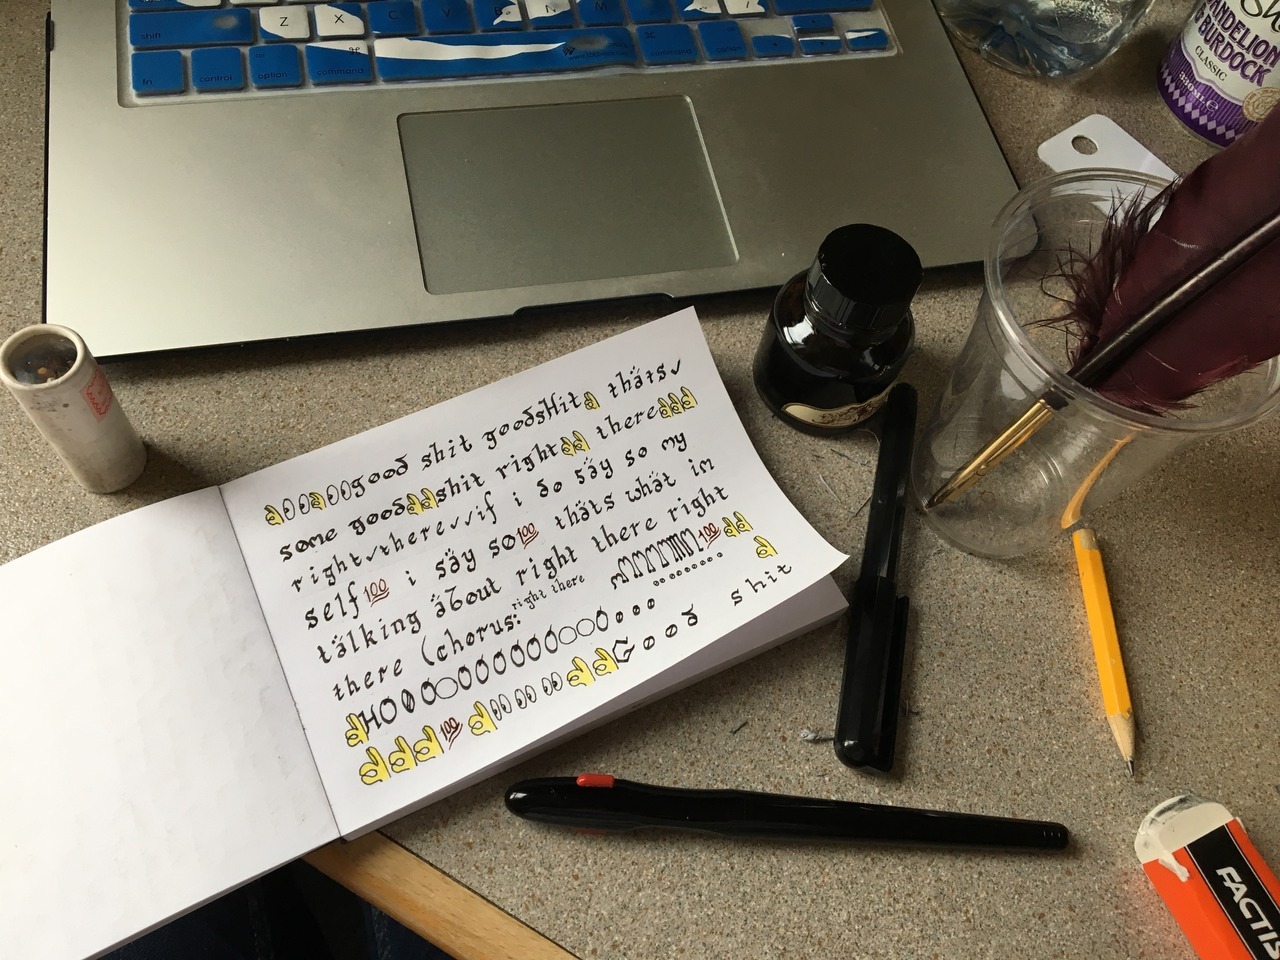 shift
Z X C V B N M
fn control option command
command option
DANDELION
& BURDOCK
CLASSIC
330ml e
👌👀👌👀good shit goodsHit👌 thats✔
some good👌👌shit right👌👌 there👌👌👌
right✔there✔✔if i do say so my
self💯 i say so💯 thats what im
talking about right there right
there (chorus: right there) mMMMMᎷM💯👌👌
👌HO0OОOOOOOOOOOOOooo 👌
👌👌👌💯👌👀👀👀👌👌Good shit
FACTIS